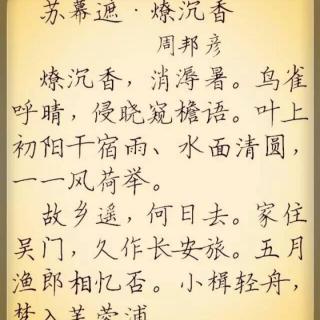 苏幕遮·燎沉香
周邦彦
燎沉香，消溽暑。鸟雀
呼晴，侵晓窥檐语。叶上
初阳干宿雨、水面清圆，
一一风荷举。
故乡遥，何日去。家住
吴门，久作长安旅。五月
渔郎相忆否。小楫轻舟，
梦入芙蓉浦